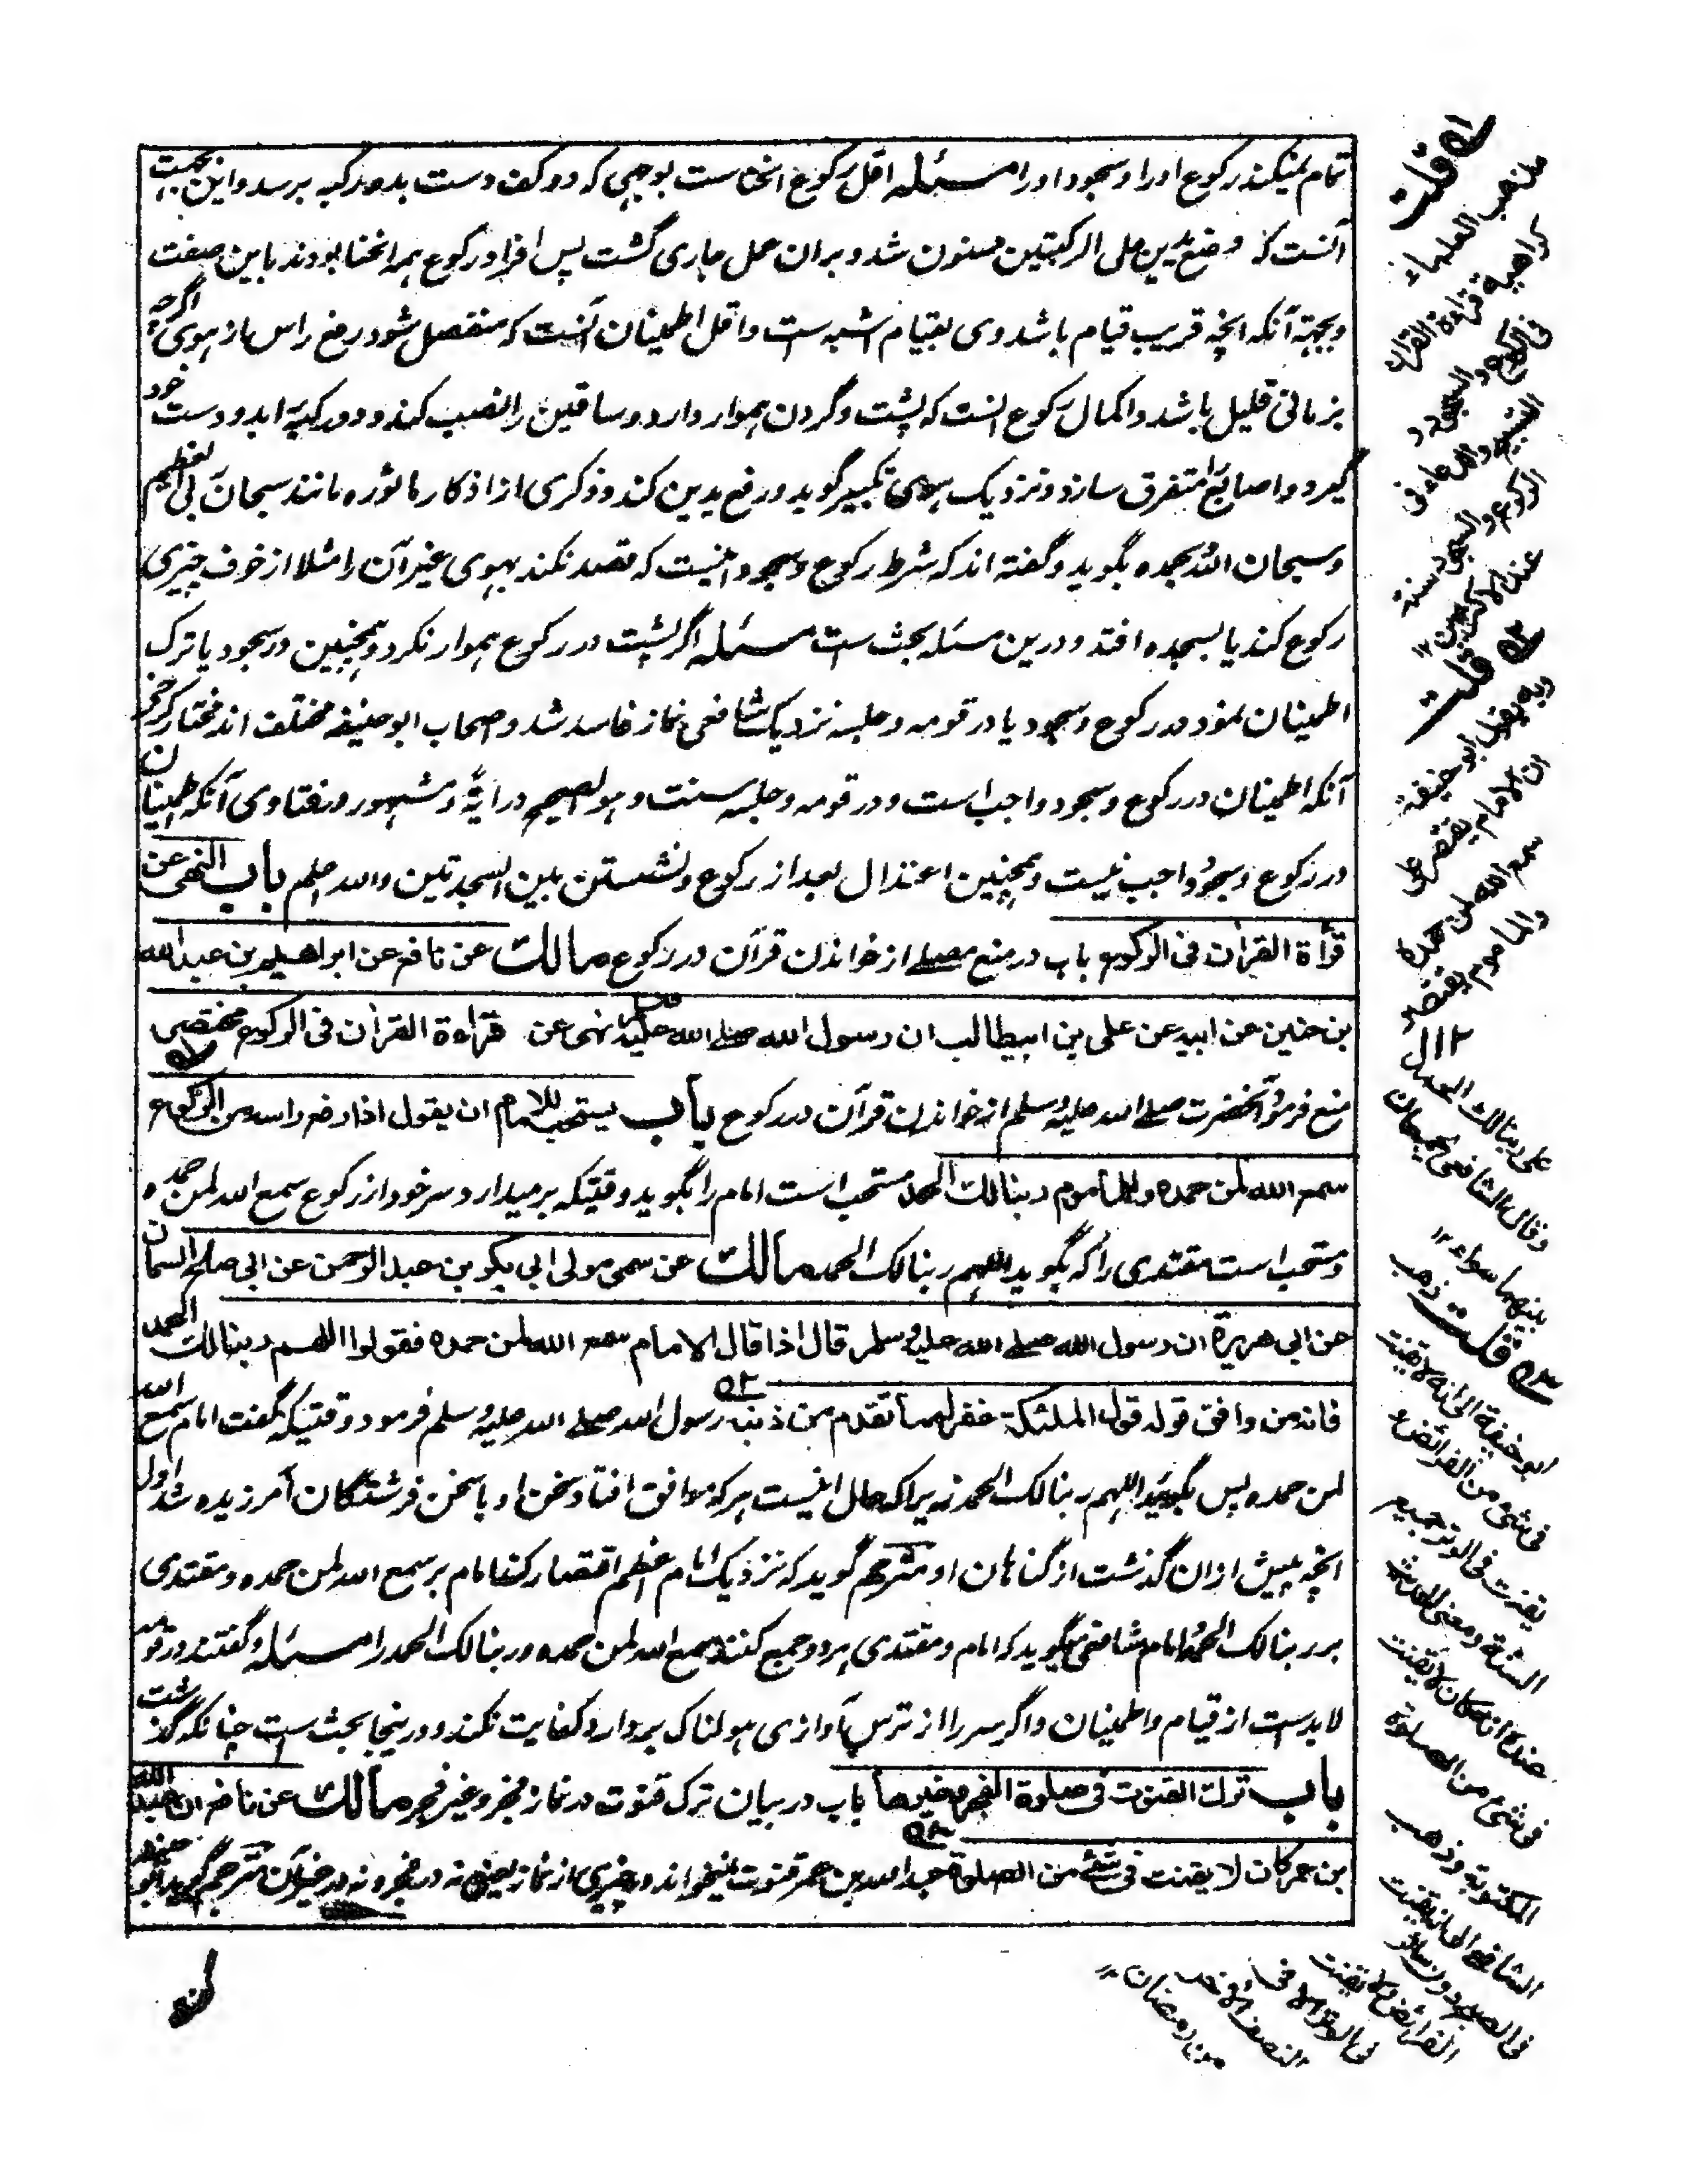 تمام نمیکند رکوع او را و سجود او را مسئله اقل رکوع انحناست بوجهی که دو کف دست بدو رکبه برسد و این بجهت
آنست که وضع یدین علی الرکبتین مسنون شد و بران عمل جاری گشت پس افراد رکوع همه انحنا بودند باین صفت
و بجهة آنکه انچه قریب قیام باشد وی بقیام اشبه است و اقل اطمینان آنست که منفصل شود رفع راس از هوی اگرچه
بزمانی قلیل باشد و اکمال رکوع انست که پشت و گردن هموار دارد و ساقین را نصب کند و دو رکبه را بدو دست خود
گیرد و اصابع را متفرق سازد و نزدیک هوی تکبیر گوید و رفع یدین کند و ذکری از اذکار ماثوره مانند سبحان ربی العظیم
و سبحان الله بحمده بگوید و گفته اند که شرط رکوع و سجود اینست که قصد نکند بهوی غیر آن را مثلا از خوف چیزی
رکوع کند یا بسجده افتد و درین مسئله بحث ست مسئله اگر پشت در رکوع هموار نکرد و همچنین در سجود یا ترک
اطمینان نمود در رکوع و سجود یا در قومه و جلسه نزدیک شافعی نماز فاسد شد و اصحاب ابو حنیفه مختلف اند مختار کرخی
آنکه اطمینان در رکوع و سجود واجب است و در قومه و جلسه سنت و هو الصحیح درایة و مشهور در فتاوی آنکه اطمینان
در رکوع و سجود واجب نیست و همچنین اعتدال بعد از رکوع و نشستن بین السجدتین والله اعلم باب النهی عن
قرأة القران فی الرکوع باب در منع مصلے از خواندن قرآن در رکوع مالك عن نافع عن ابراهیم بن عبدالله
بن حنین عن ابیه عن علی بن ابیطالب ان رسول الله صلے الله علیه نهی عن قراءة القران فی الرکوع
منع فرمود آنحضرت صلے الله علیه وسلم از خواندن قرآن در رکوع باب یستحب للامام ان یقول اذا رفع راسه من الرکوع
سمع الله لمن حمده وللمأموم ربنا لك الحمد مستحب است امام را بگوید وقتیکه بر میدارد سر خود از رکوع سمع الله لمن حمده و
مستحب است مقتدی را که بگوید اللهم ربنا لک الحمد مالك عن سمی مولی ابی بکر بن عبد الرحمن عن ابی صالح السمان
عن ابی هریرة ان رسول الله صلے الله علیه وسلم قال اذا قال الامام سمع الله لمن حمده فقولوا اللهم ربنا لك الحمد
فانه من وافق قوله قول الملئکة غفر له ما تقدم من ذنبه رسول الله صلے الله علیه وسلم فرمود وقتیکه گفت امام سمع الله
لمن حمده پس بگویید اللهم ربنا لک الحمد زیرا که حال اینست هر که موافق افتاد سخن او با سخن فرشتگان آمرزیده شد او را
انچه پیش ازان گذشت از گناهان او مترجم گوید که نزدیک امام اعظم اقتصار کند امام بر سمع الله لمن حمده و مقتدی
بر ربنا لک الحمد و امام شافعی میگوید که امام و مقتدی هر دو جمع کنند سمع الله لمن حمده و ربنا لک الحمد را مسئله و گفتند در قومه
لابد ست از قیام و اطمینان و اگر سر را از ترس آوازی هولناک بردارد کفایت نکند و درینجا بحث ست چنانکه گذشت
باب ترك القنوت فی صلوة الفجر وغیرها باب در بیان ترک قنوت در نماز فجر و غیر فجر مالك عن نافع ان عبد الله
بن عمر کان لا یقنت فی شئ من الصلوة عبد الله بن عمر قنوت نمیخواند در چیزی از نماز یعنی نه در فجر و نه در غیر آن مترجم گوید ابو حنیفه
ه قلت
مذهب العلماء
کراهیة قراءة القران
فی الرکوع والسجود و
التسبیح والدعاء فی
الرکوع والسجود سنة
عند الاکثرین ١٢
ه قلت
وبه یقول ابو حنیفة
ان الامام یقتصر علی
سمع الله لمن حمده
والماموم یقتصر
علی ربنا لك الحمد
وقال الشافعی یجمعان
بینهما سواء ١٢
ه قلت ذهب
ابو حنیفة الی انه لا یقنت
فی شئ من الفرائض و
یقنت فی الوتر جمیع
السنة ومعنی الحدیث
عنده انه کان لا یقنت
فی شئ من الصلوة
المکتوبة وذهب
الشافعی الی انه یقنت
فی الصبح دون سائر
الفرائض ولا یقنت
فی الوتر الا فی
النصف الاخیر
من رمضان ١٢